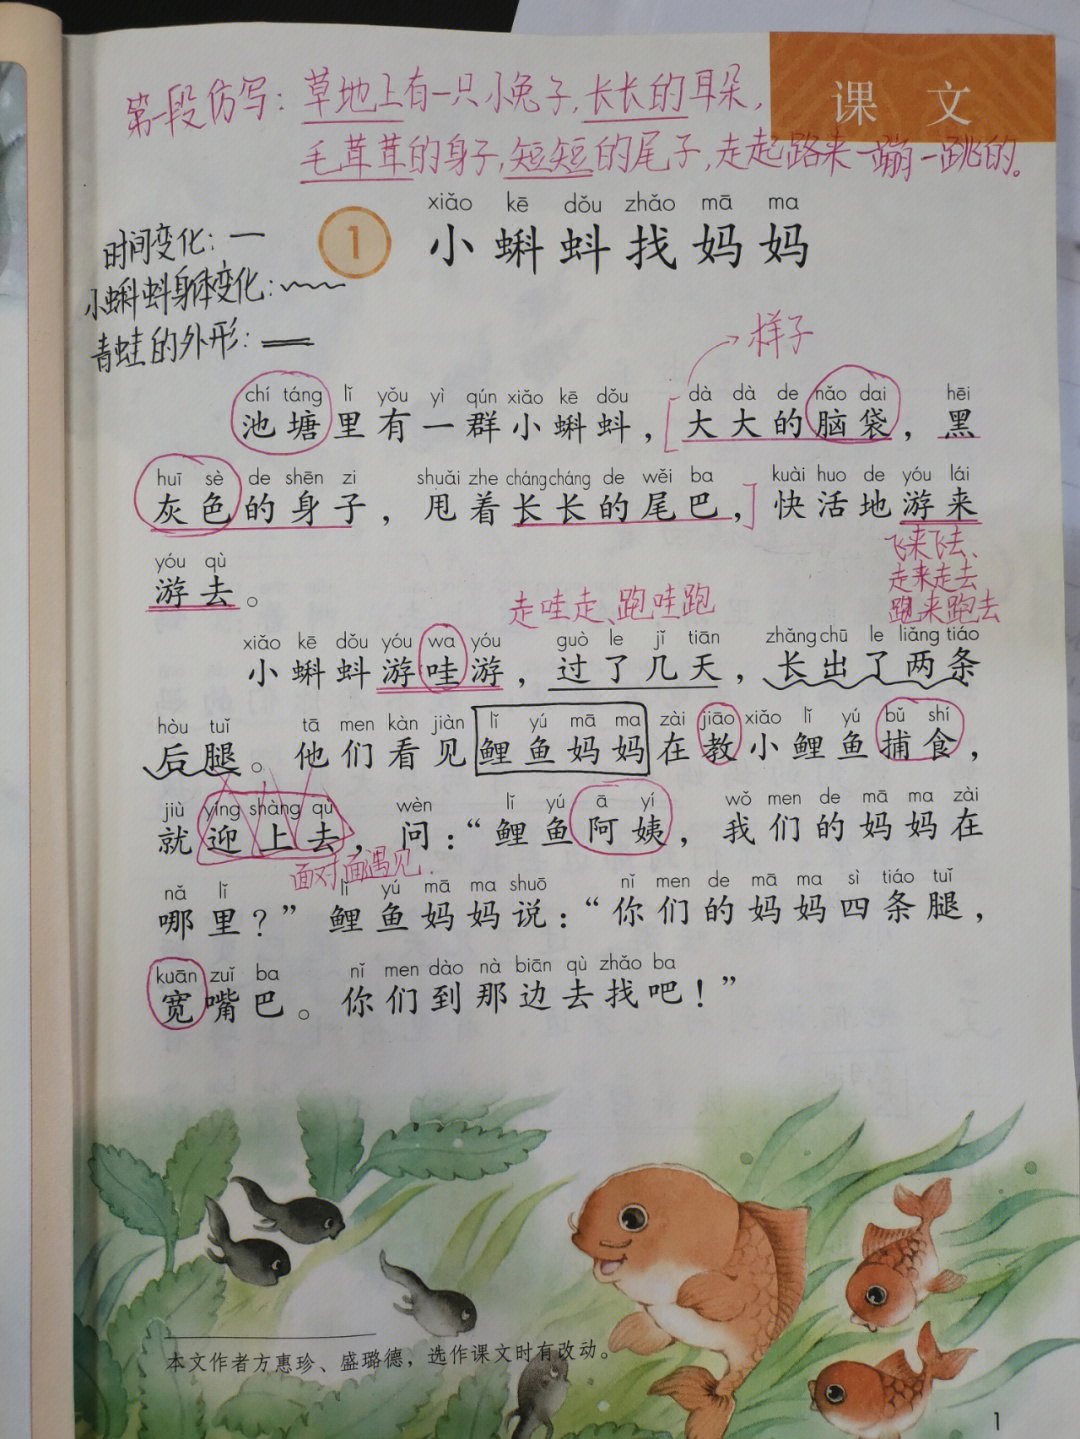 课 文
第一段仿写：草地上有一只小兔子，长长的耳朵，
毛茸茸的身子，短短的尾子，走起路来一蹦一跳的。
xiǎo kē dǒu zhǎo mā ma
1 小蝌蚪找妈妈
时间变化：
小蝌蚪身体变化：
青蛙的外形：
样子
chí táng lǐ yǒu yì qún xiǎo kē dǒu dà dà de nǎo dai hēi
池塘里有一群小蝌蚪，大大的脑袋，黑
huī sè de shēn zi shuǎi zhe cháng cháng de wěi ba kuài huo de yóu lái
灰色的身子，甩着长长的尾巴，快活地游来
飞来飞去、
走来走去
跑来跑去
yóu qù
游去。
走哇走、跑哇跑
xiǎo kē dǒu yóu wa yóu guò le jǐ tiān zhǎng chū le liǎng tiáo
小蝌蚪游哇游，过了几天，长出了两条
hòu tuǐ tā men kàn jiàn lǐ yú mā ma zài jiāo xiǎo lǐ yú bǔ shí
后腿。他们看见鲤鱼妈妈在教小鲤鱼捕食，
jiù yíng shàng qù wèn lǐ yú ā yí wǒ men de mā ma zài
就迎上去，问：“鲤鱼阿姨，我们的妈妈在
面对面遇见.
nǎ lǐ lǐ yú mā ma shuō nǐ men de mā ma sì tiáo tuǐ
哪里？”鲤鱼妈妈说：“你们的妈妈四条腿，
kuān zuǐ ba nǐ men dào nà biān qù zhǎo ba
宽嘴巴。你们到那边去找吧！”
本文作者方惠珍、盛璐德，选作课文时有改动。
1